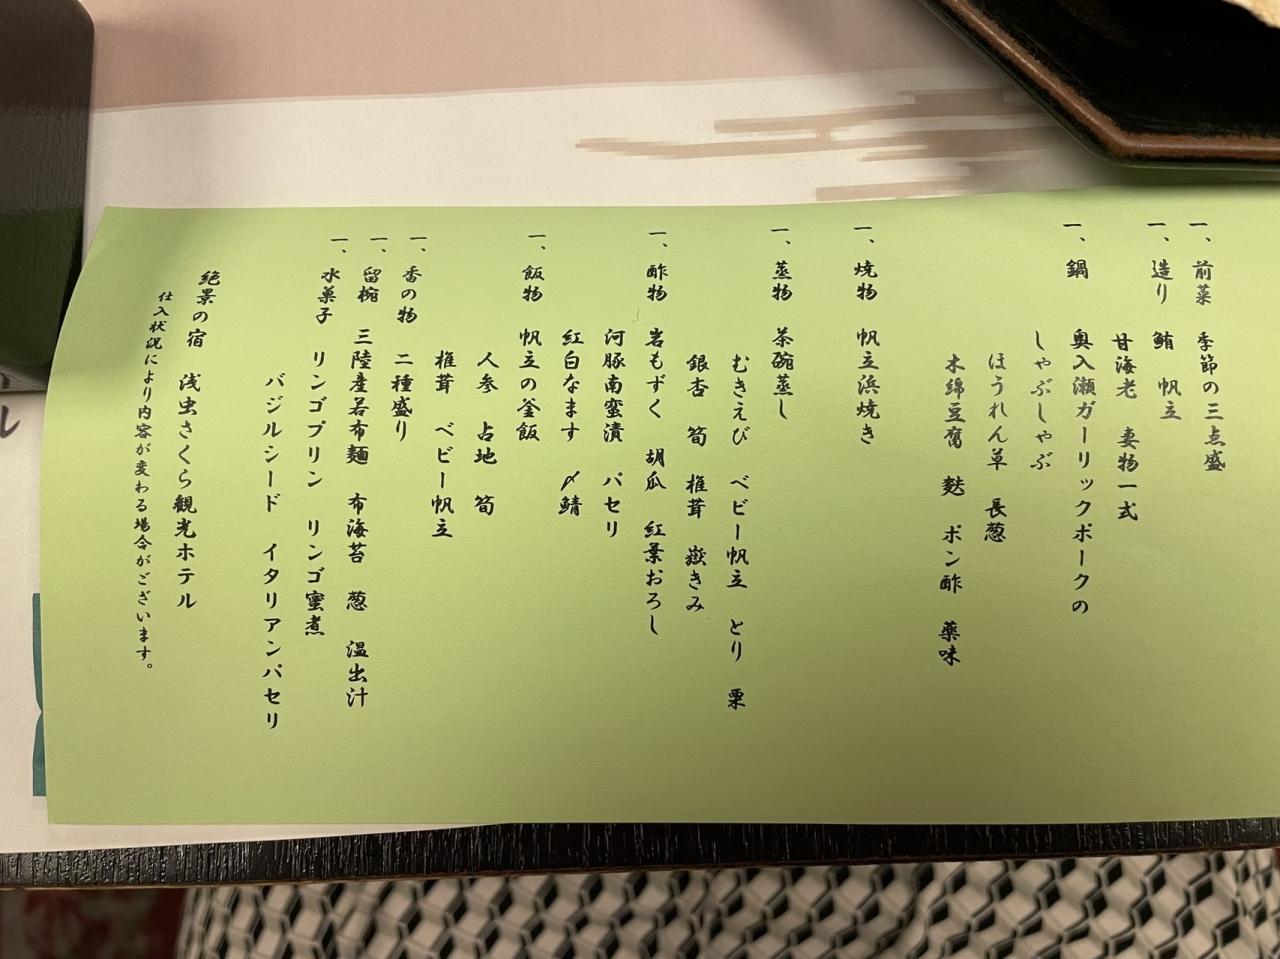 一、前菜　季節の三点盛
一、造り　鮪　帆立
甘海老　妻物一式
一、鍋　奥入瀬ガーリックポークの
しゃぶしゃぶ
ほうれん草　長葱
木綿豆腐　麩　ポン酢　薬味
一、焼物　帆立浜焼き
一、蒸物　茶碗蒸し
むきえび　ベビー帆立　とり　栗
銀杏　筍　椎茸　嶽きみ
一、酢物　岩もずく　胡瓜　紅葉おろし
河豚南蛮漬　パセリ
紅白なます　〆鯖
一、飯物　帆立の釜飯
人参　占地　筍
椎茸　ベビー帆立
一、香の物　二種盛り
一、留椀　三陸産若布麺　布海苔　葱　温出汁
一、水菓子　リンゴプリン　リンゴ蜜煮
バジルシード　イタリアンパセリ
絶景の宿　浅虫さくら観光ホテル
仕入状況により内容が変わる場合がございます。
ル